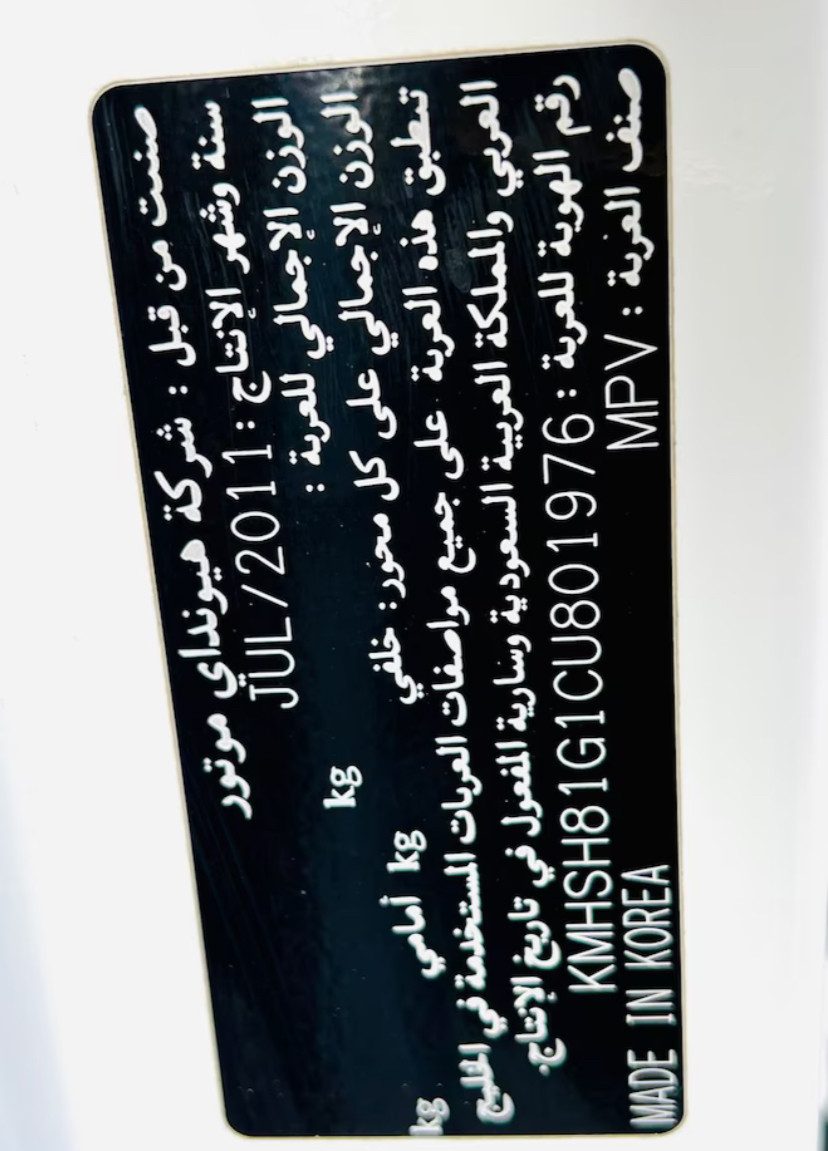 صنعت من قبل : شركة هيونداي موتور
سنة وشهر الإنتاج : JUL/2011
الوزن الإجمالي للعربة : kg
الوزن الإجمالي على كل محور: خلفي kg أمامي kg
تنطبق هذه العربة على جميع مواصفات العربات المستخدمة في الخليج
العربي والمملكة العربية السعودية وسارية المفعول في تاريخ الإنتاج.
رقم الهوية للعربة : KMHSH81G1CU801976
صنف العربة : MPV MADE IN KOREA